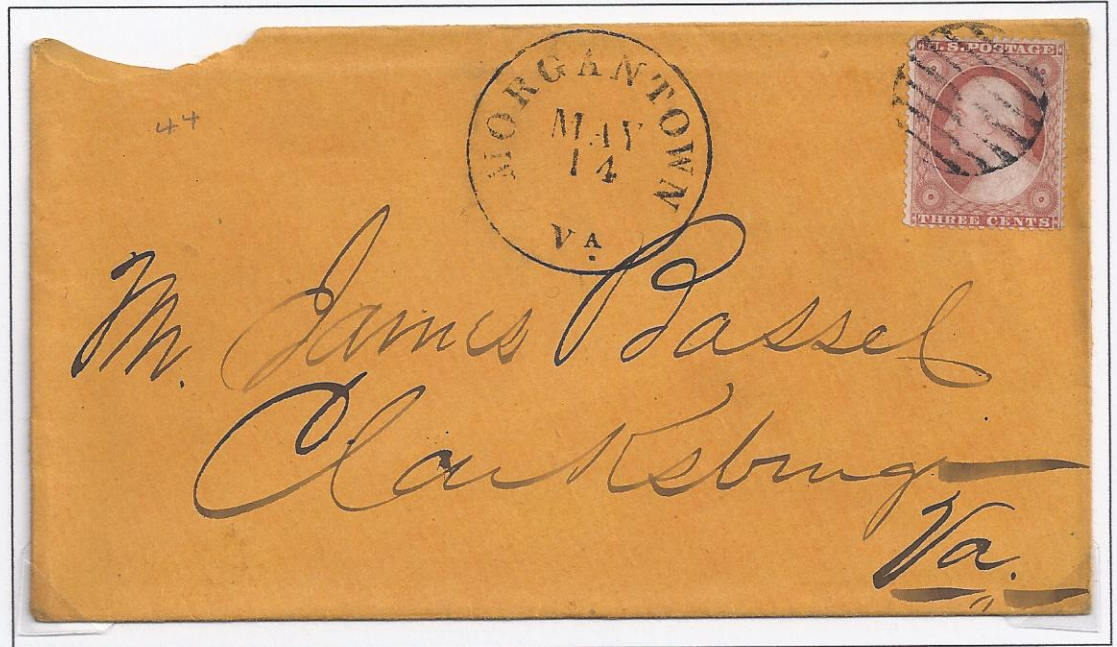 44
MORGANTOWN
MAY
14
VA.
U.S. POSTAGE
THREE CENTS
Mr. James Bassel
Clarksburg
Va.